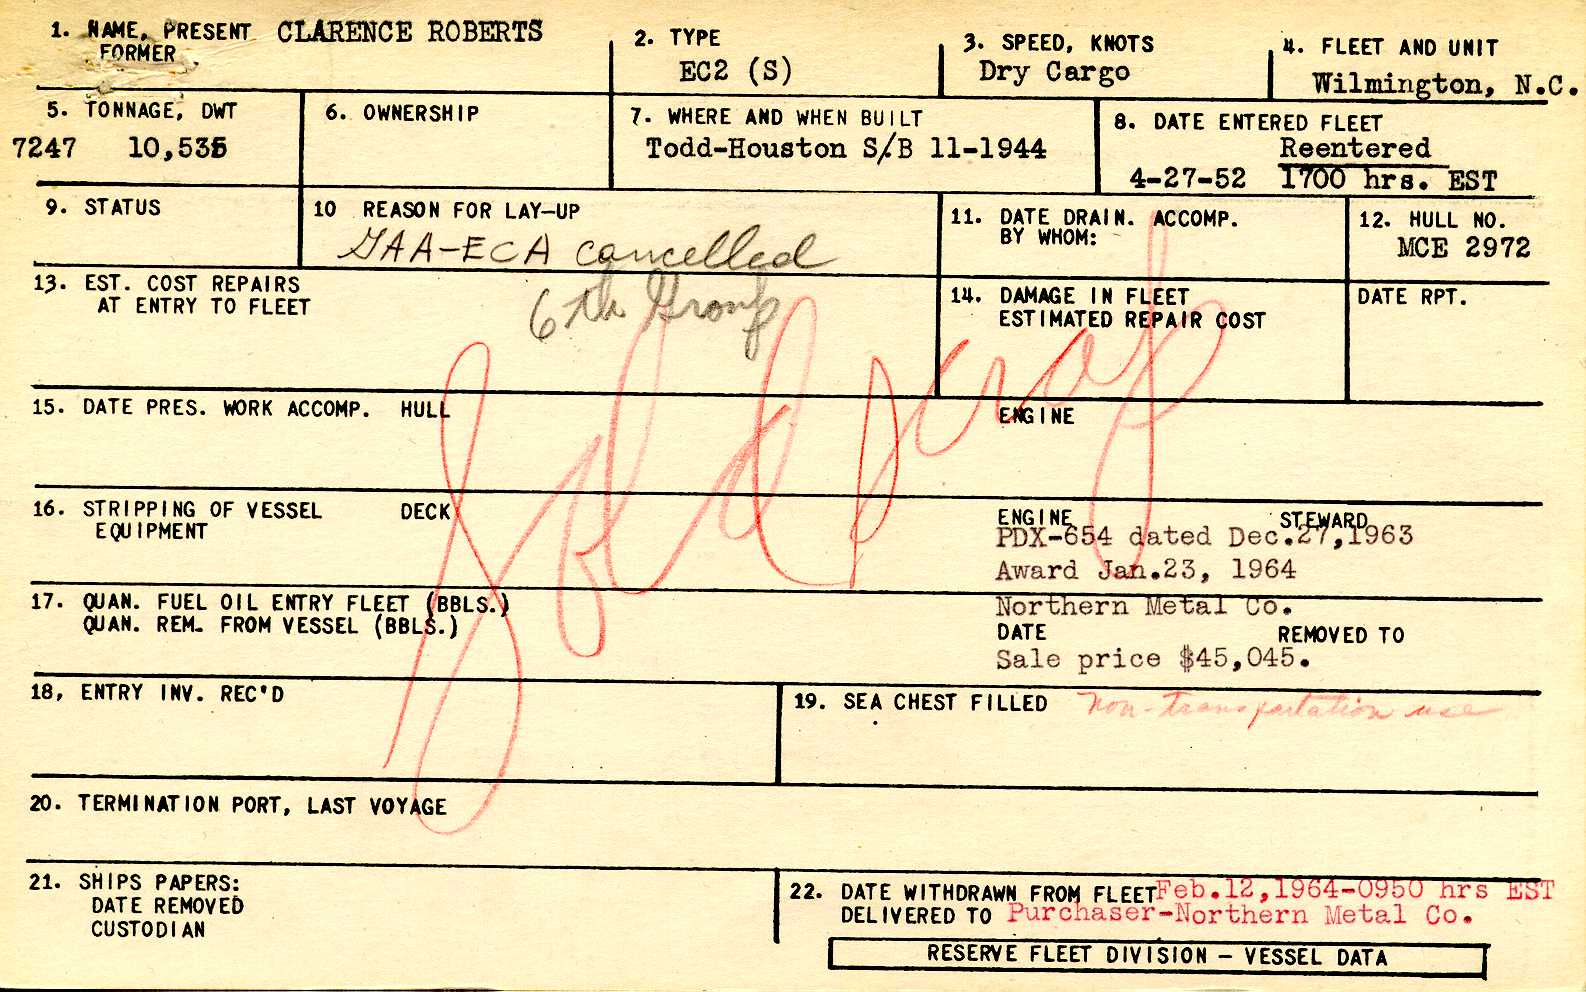 1. NAME, PRESENT CLARENCE ROBERTS
FORMER
2. TYPE
EC2 (S)
3. SPEED, KNOTS
Dry Cargo
4. FLEET AND UNIT
Wilmington, N.C.
5. TONNAGE, DWT
7247 10,535
6. OWNERSHIP
7. WHERE AND WHEN BUILT
Todd-Houston S/B 11-1944
8. DATE ENTERED FLEET
Reentered
4-27-52 1700 hrs. EST
9. STATUS
10 REASON FOR LAY-UP
GAA-ECA cancelled
6th Group
11. DATE DRAIN. ACCOMP.
BY WHOM:
12. HULL NO.
MCE 2972
13. EST. COST REPAIRS
AT ENTRY TO FLEET
14. DAMAGE IN FLEET
ESTIMATED REPAIR COST
DATE RPT.
Sold scrap
15. DATE PRES. WORK ACCOMP. HULL
ENGINE
16. STRIPPING OF VESSEL DECK
EQUIPMENT
ENGINE STEWARD
PDX-654 dated Dec.27,1963
Award Jan.23, 1964
17. QUAN. FUEL OIL ENTRY FLEET (BBLS.)
QUAN. REM. FROM VESSEL (BBLS.)
Northern Metal Co.
DATE REMOVED TO
Sale price $45,045.
18, ENTRY INV. REC'D
19. SEA CHEST FILLED non-transportation use
20. TERMINATION PORT, LAST VOYAGE
21. SHIPS PAPERS:
DATE REMOVED
CUSTODIAN
22. DATE WITHDRAWN FROM FLEET Feb.12,1964-0950 hrs EST
DELIVERED TO Purchaser-Northern Metal Co.
RESERVE FLEET DIVISION - VESSEL DATA